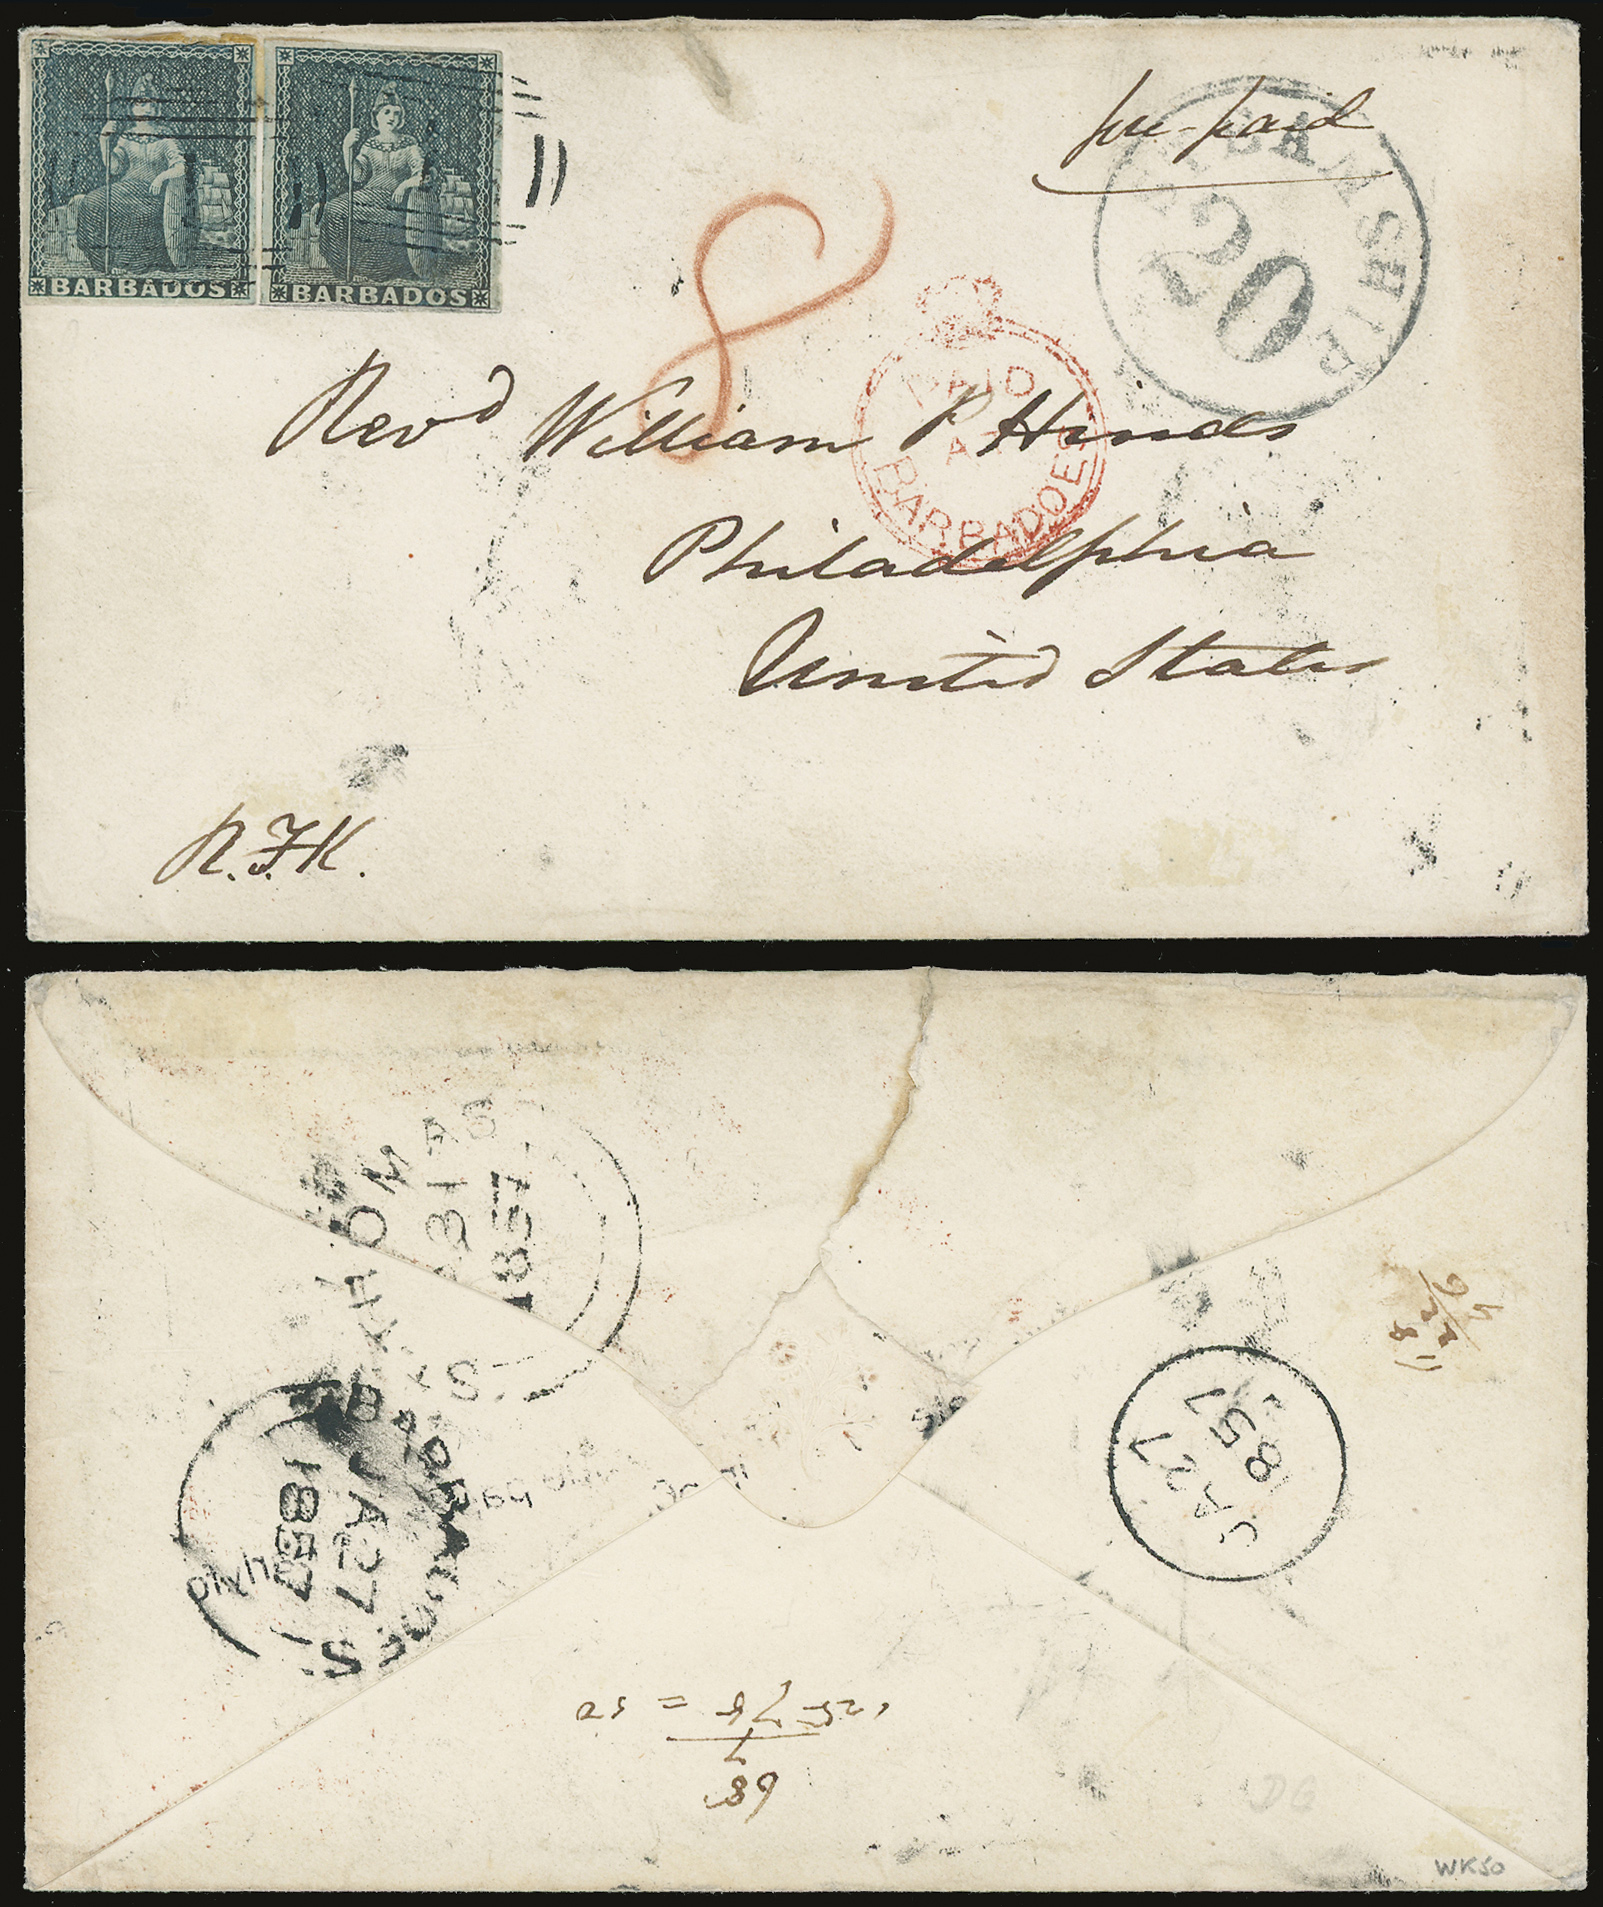 BARBADOS
BARBADOS
pre-paid
STEAMSHIP
20
8
PAID
AT
BARBADOES
Revd William P Hinds
Philadelphia
United States
R.F.K.
ST THOMAS
31
1857
BARBADOES
JA 27
1857
JA 27
1857
DG
WK50